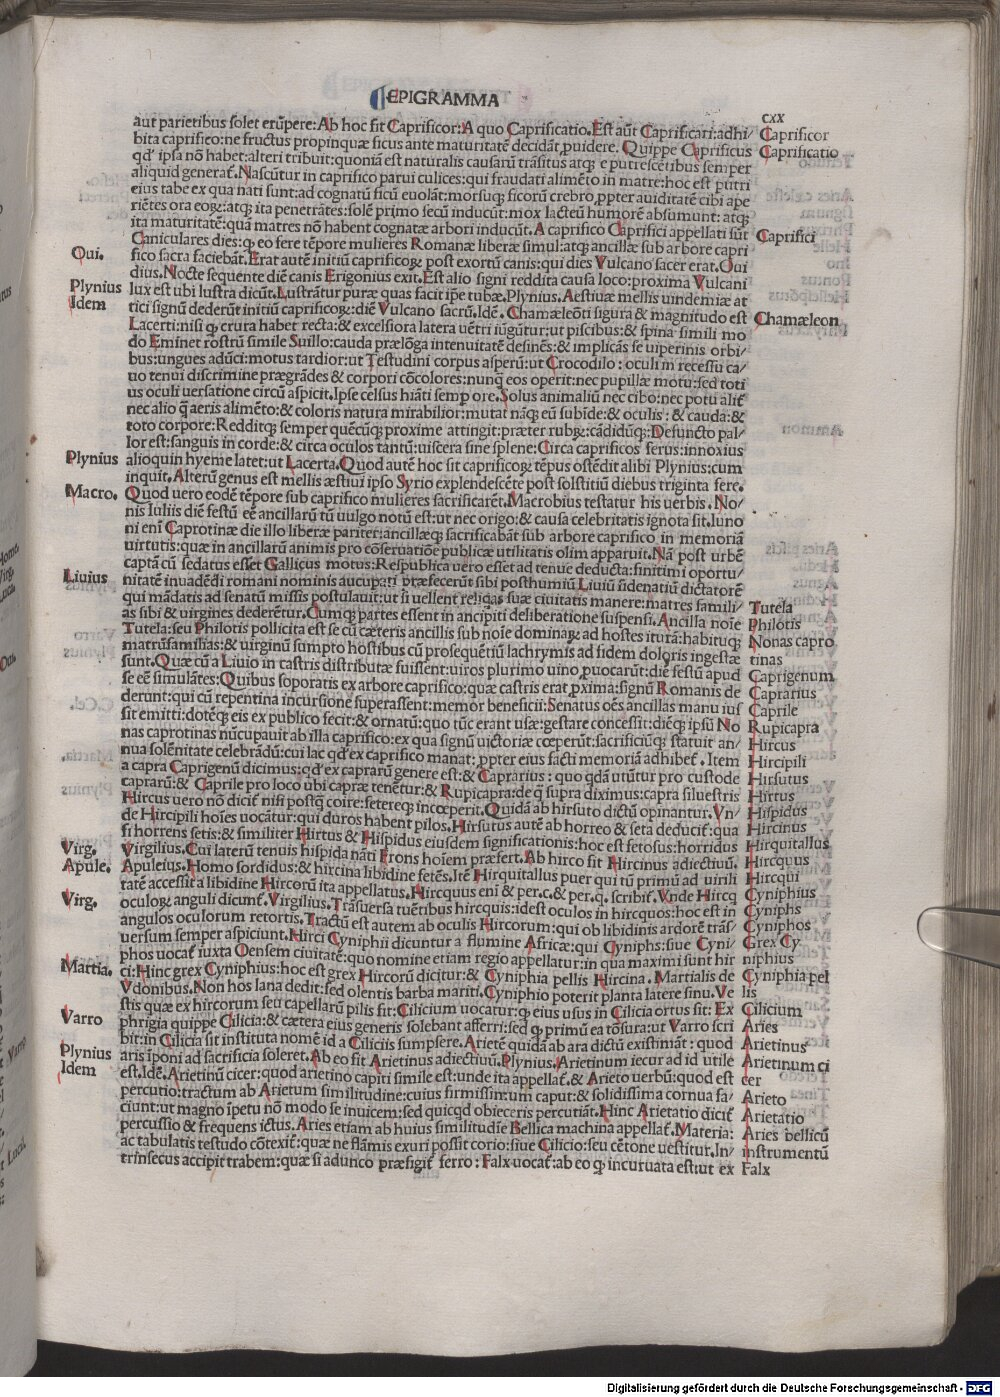 EPIGRAMMA
CXX
aut parietibus solet erũpere: Ab hoc fit Caprificor: A quo Caprificatio. Est aũt Caprificari: adhi/ Caprificor
bita caprifico: ne fructus propinquæ ficus ante maturitatẽ decidãt, puidere. Quippe Caprificus Caprificatio
qđ ipsa nõ habet: alteri tribuit: quoniã est naturalis causarũ trãsitus atqꝫ e putrescẽtibus semper
aliquid generaꝉ. Nascũtur in caprifico parui culices: qui fraudati alimẽto in matre: hoc est putri
eius tabe ex qua nati sunt: ad cognatũ ficũ euolãt: morsuqꝫ ficorũ crebro, ppter auiditatẽ cibi ape
riẽtes ora eoꝝ: atqꝫ ita penetrãtes: solẽ primo secũ inducũt: mox lacteũ humorẽ absumunt: atqꝫ
ita maturitatẽ: quã matres nõ habent cognatæ arbori inducũt. A caprifico Caprifici appellati sũt Caprifici
Caniculares dies: qꝫ eo fere tẽpore mulieres Romanæ liberæ simul: atqꝫ ancillæ sub arbore capri
Oui. fico sacra faciebãt. Erat autẽ initiũ caprificoꝝ post exortũ canis: qui dies Vulcano sacer erat. Oui
dius. Nocte sequente diẽ canis Erigonius exit. Est alio signi reddita causa loco: proxima Vulcani
Plynius lux est ubi lustra dicũt. Lustrãtur puræ quas facit ipẽ tubæ. Plynius. Aestiuæ mellis uindemiæ at
Idem tici signũ dederũt initiũ caprificoꝝ: diẽ Vulcano sacrũ. Idẽ. Chamæleõti figura & magnitudo est Chamæleon
Lacerti: nisi qꝫ crura habet recta: & excelsiora latera uẽtri iugũtur: ut piscibus: & spina simili mo
do Eminet rostrũ simile Suillo: cauda prælõga in tenuitatẽ desinẽs: & implicãs se uiperinis orbi/
bus: ungues adũci: motus tardior: ut Testudini corpus asperũ: ut Crocodilo: oculi in recessu ca/
uo tenui discrimine prægrãdes & corpori cõcolores: nunqꝫ eos operit: nec pupillæ motu: sed toti
us oculi uersatione circũ aspicit. Ipse celsus hiãti semp ore. Solus animaliũ nec cibo: nec potu aliꝉ
nec alio q̃ aeris alimẽto: & coloris natura mirabilior: mutat nãqꝫ eũ subĩde: & oculis: & cauda: &
toto corpore: Redditqꝫ semper quẽcũqꝫ proxime attingit: præter rubꝝ: cãdidũqꝫ: Defuncto pal/
lor est: sanguis in corde: & circa oculos tantũ: uiscera sine splene: Circa caprificos ferus: innoxius
Plynius alioquin hyeme latet: ut Lacerta. Quod autẽ hoc sit caprificoꝝ tẽpus ostẽdit alibi Plynius: cum
inquit. Alterũ genus est mellis æstiui ipso Syrio explendescẽte post solstitiũ diebus triginta fere.
Macro. Quod uero eodẽ tẽpore sub caprifico mulieres sacrificarẽt. Macrobius testatur his uerbis. No/
nis Iuliis diẽ festũ eẽ ancillarũ tũ uulgo notũ est: ut nec origo: & causa celebritatis ignota sit. Iuno
ni enĩ Caprotinæ die illo liberæ pariter: ancillæqꝫ sacrificabãt sub arbore caprifico in memoriã
uirtutis: quæ in ancillarũ animis pro cõseruatiõe publicæ utilitatis olim apparuit. Nã post urbẽ
captã cũ sedatus esset Gallicus motus: Respublica uero esset ad tenue deducta: finitimi oportu/
Liuius nitatẽ inuadẽdi romani nominis aucupati præfecerũt sibi posthumiũ Liuiũ fidenatiũ dictatorẽ
qui mãdatis ad senatũ missis postulauit: ut si uellent reliqas suæ ciuitatis manere: matres famili/ Tutela
as sibi & virgines dederẽtur. Cumqꝫ partes essent in ancipiti deliberatione suspensi. Ancilla noĩe Philotis
Tutela: seu Philotis pollicita est se cũ cæteris ancillis sub noĩe dominaꝝ ad hostes iturã: habituqꝫ Nonas capro
matrũfamilias: & uirginũ sumpto hostibus cũ prosequẽtiũ lachrymis ad fidem doloris ingestæ tinas
sunt. Quæ cũ a Liuio in castris distributæ fuissent: uiros plurimo uino, puocarũt: diẽ festũ apud Caprigenum
se eẽ simulãtes: Quibus soporatis ex arbore caprifico: quæ castris erat, pxima: signũ Romanis de Caprarius
derunt: qui cũ repentina incursione superassent: memor beneficii: Senatus oẽs ancillas manu ius Caprile
sit emitti: dotẽqꝫ eis ex publico fecit: & ornatũ: quo tũc erant usæ: gestare concessit: diẽqꝫ ipsũ No Rupicapra
nas caprotinas nũcupauit ab illa caprifico: ex qua signũ uictoriæ cœperunt: sacrificiũqꝫ statuit an/ Hircus
nua solẽnitate celebrãdũ: cui lac qđ ex caprifico manat: ppter eius facti memoriã adhibeꝉ. Item Hircipili
a capra Caprigenũ dicimus: qđ ex caprarũ genere est: & Caprarius: quo qdã utũtur pro custode Hirsutus
caprarũ: & Caprile pro loco ubi capræ tenẽtur: & Rupicapra: de q̃ supra diximus: capra siluestris Hirtus
Hircus uero nõ diciꝉ nisi postq̃ coire: setereqꝫ incœperit. Quidã ab hirsuto dictũ opinantur. Vn/ Hispidus
de Hircipili hoĩes uocãtur: qui duros habent pilos. Hirsutus autẽ ab horreo & seta deduciꝉ: qua Hircinus
si horrens setis: & similiter Hirtus & Hispidus eiusdem significationis: hoc est setosus: horridus Hirquitallus
Virg. Virgilius. Cui laterũ tenuis hispida nãti Frons hoĩem præfert. Ab hirco fit Hircinus adiectiuũ. Hircquus
Apule. Apuleius. Homo sordidus: & hircina libidine fetẽs. Itẽ Hirquitallus puer qui tũ primũ ad uirili Hircqui
tatẽ accessit a libidine Hircorũ ita appellatus. Hircquus enĩ & per. c. & per. q. scribiꝉ. Vnde Hircq Cyniphius
Virg. oculoꝝ anguli dicunꝉ. Virgilius. Trãsuersa tuẽtibus hircquis: idest oculos in hircquos: hoc est in Cyniphs
angulos oculorum retortis. Tractũ est autem ab oculis Hircorum: qui ob libidinis ardorẽ trãs/ Cyniphos
uersum semper aspiciunt. Hirci Cyniphii dicuntur a flumine Africæ: qui Cyniphs: siue Cyni/ Grex Cy
phos uocaꝉ iuxta Oensem ciuitatẽ: quo nomine etiam regio appellatur: in qua maximi sunt hir niphius
Martia. ci: Hinc grex Cyniphius: hoc est grex Hircorũ dicitur: & Cyniphia pellis Hircina. Martialis de Cyniphia pel
Vdonibus. Non hos lana dedit: sed olentis barba mariti. Cyniphio poterit planta latere sinu. Ve lis
stis quæ ex hircorum seu capellarũ pilis fit: Cilicium uocatur: qꝫ eius usus in Cilicia ortus sit: Ex Cilicium
Varro phrigia quippe Cilicia: & cætera eius generis solebant afferri: sed qꝫ primũ ea tõsura: ut Varro scri Aries
bit: in Cilicia sit instituta nomẽ id a Ciliciis sumpsere. Arietẽ quidã ab ara dictũ existimãt: quod Arietinus
Plynius aris ĩponi ad sacrificia soleret. Ab eo fit Arietinus adiectiuũ. Plynius. Arietinum iecur ad id utile Arietinum ci
Idem est. Idẽ. Arietinũ cicer: quod arietino capiti simile est: unde ita appellaꝉ. & Arieto uerbũ: quod est cer
percutio: tractum ab Arietum similitudine: cuius firmissimum caput: & solidissima cornua fa/ Arieto
ciunt: ut magno ĩpetu nõ modo se inuicem: sed quicqd obieceris percutiãt. Hinc Arietatio diciꝉ Arietatio
percussio & frequens ictus. Aries etiam ab huius similitudĩe Bellica machina appellaꝉ. Materia: Aries bellicũ
ac tabulatis testudo cõtexiꝉ: quæ ne flãmis exuri possit corio: siue Cilicio: seu cẽtone uestitur. In/ instrumentũ
trinsecus accipit trabem: quæ si adunco præfigiꝉ ferro: Falx uocaꝉ: ab eo qꝫ incuruata est: ut ex Falx
Digitalisierung gefördert durch die Deutsche Forschungsgemeinschaft - DFG